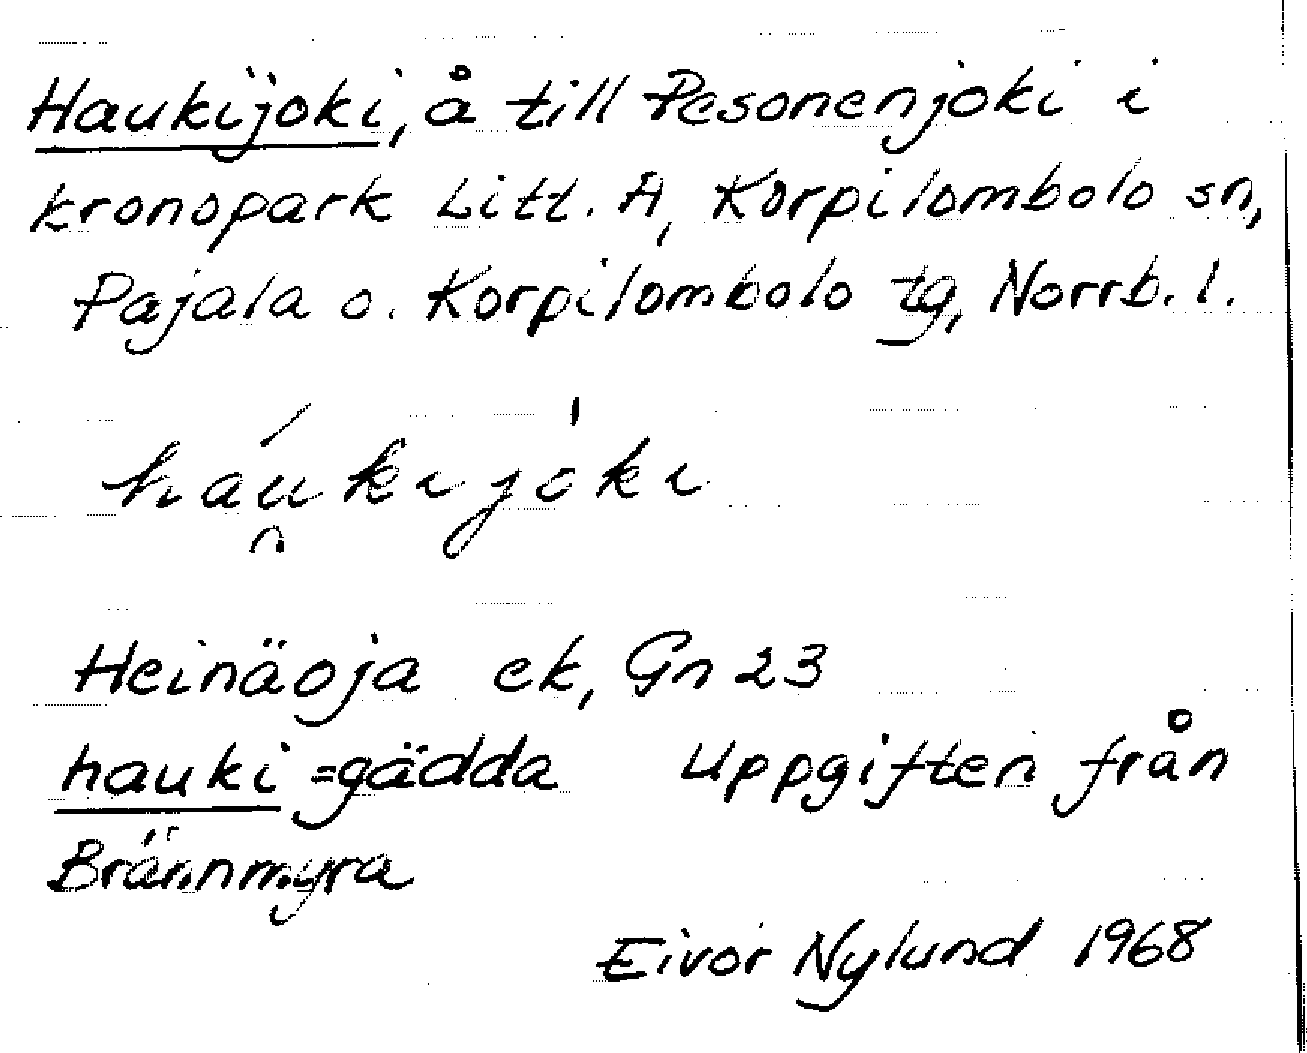 Haukijoki, å till Pesonenjoki i
kronopark Litt. A, Korpilombolo sn,
Pajala o. Korpilombolo tg, Norrb. l.
háu̯kijòki
Heinäoja ek, Gn 23
hauki = gädda Uppgiften från
Brännmyra
Eivor Nylund 1968